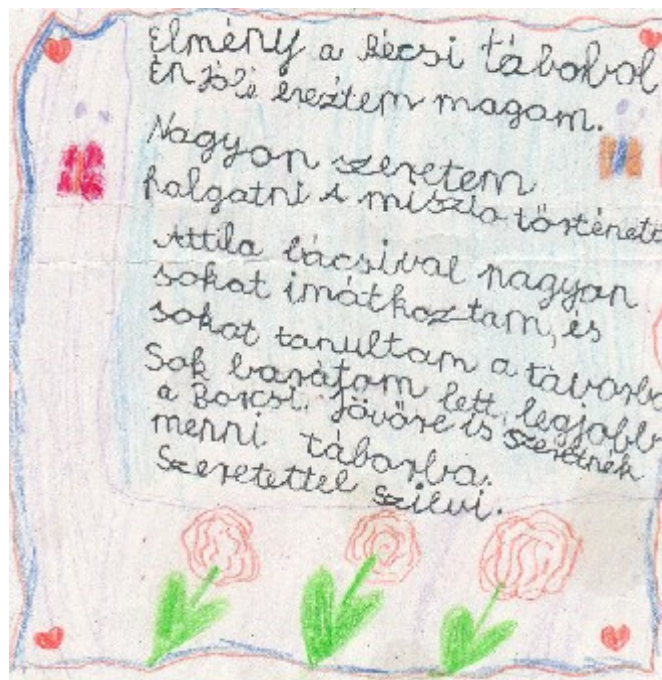 Elmény a Bécsi táborból
Én jólé éreztem magam.
Nagyon szeretem
halgatni a miszio történet
Attila bácsival nagyon
sokat imátkoztam, és
sokat tanultam a táborb
Sok barátom lett, legjobb
a Borcsi. Jövőre is szeretnék
menni táborba.
Szeretettel Szilvi.